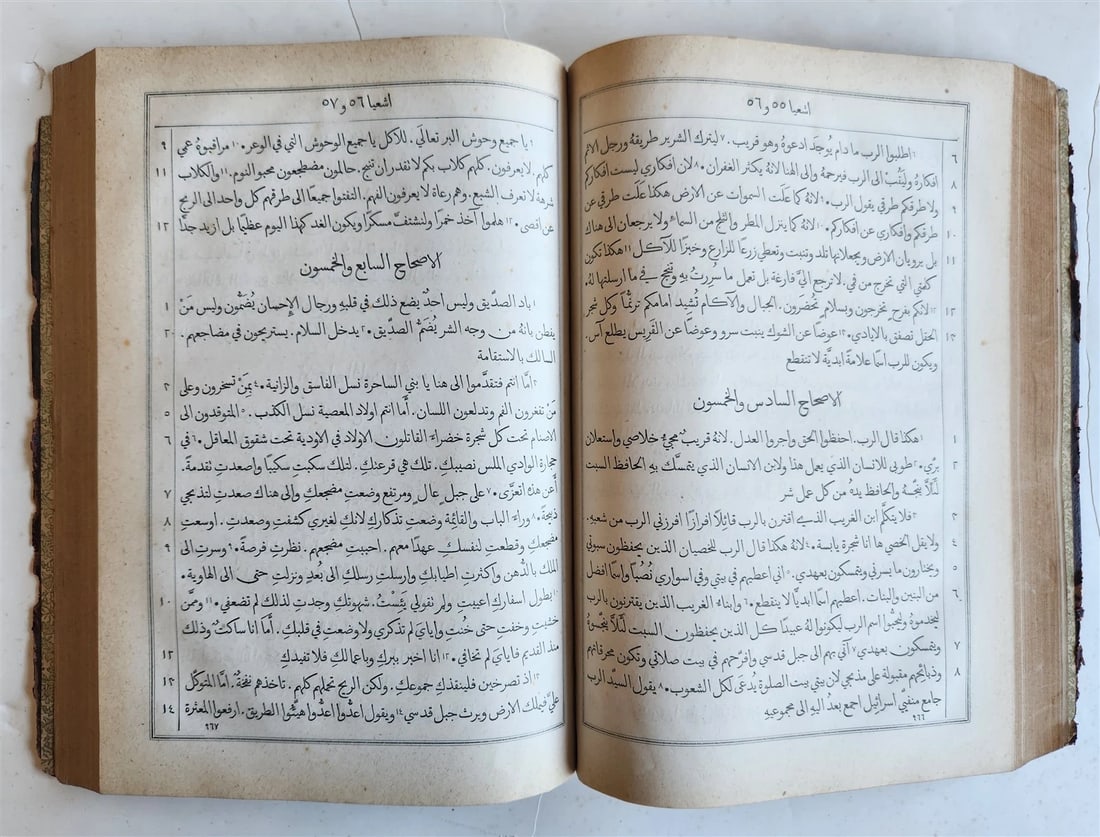 اشعيا ٥٥ و ٥٦
٦ ٦اطلبوا الرب ما دام يُوجَد ادعوهُ وهو قريب. ٧ ليترك الشرير طريقهُ ورجل الاثم
٨ افكارهُ وليَتُب الى الرب فيرحمهُ والى الهنا لانهُ يكثر الغفران. ٨ لان افكاري ليست افكاركم
٩ ولا طرقكم طرقي يقول الرب. ٩ لانهُ كما عَلَت السموات عن الارض هكذا عَلَت طرقي عن
١٠ طرقكم وافكاري عن افكاركم. ١٠ لانهُ كما ينزل المطر والثلج من السماء ولا يرجعان الى هناك
١١ بل يرويان الارض ويجعلانها تلد وتنبت وتعطي زرعًا للزارع وخبزًا للآكل ١١ هكذا تكون
كلمتي التي تخرج من في. لا ترجع اليَّ فارغة بل تعمل ما سررت بهِ وتنجح في ما ارسلتها لهُ.
١٢ ١٢ لانكم بفرح تخرجون وبسلام تُحضَرون. الجبال والآكام تُشيد امامكم ترنُّمًا وكل شجر
١٣ الحقل تصفق بالايادي. ١٣ عوضًا عن الشوك ينبت سرو وعوضًا عن القريس يطلع آس.
ويكون للرب اسمًا علامة ابديَّة لا تنقطع
الاصحاح السادس والخمسون
١ ١ هكذا قال الرب. احفظوا الحق واجروا العدل. لانهُ قريب مجيءُ خلاصي واستعلان
٢ برّي. ٢ طوبى للانسان الذي يعمل هذا ولابن الانسان الذي يتمسَّك بهِ الحافظ السبت
لئلَّا ينجّسهُ والحافظ يدهُ من كل عمل شر
٣ ٣ فلا يتكلَّم ابن الغريب الذي اقترن بالرب قائلًا افرازًا افرزني الرب من شعبهِ.
٤ ولا يقل الخصي ها انا شجرة يابسة. ٤ لانهُ هكذا قال الرب للخصيان الذين يحفظون سبوتي
٥ ويختارون ما يسرني ويتمسكون بعهدي. ٥ اني اعطيهم في بيتي وفي اسواري نُصُبًا واسمًا افضل
٦ من البنين والبنات. اعطيهم اسمًا ابديًّا لا ينقطع. ٦ وابناءُ الغريب الذين يقترنون بالرب
ليخدموهُ وليحبُّوا اسم الرب ليكونوا لهُ عبيدًا كل الذين يحفظون السبت لئلَّا ينجّسوهُ
٧ ويتمسكون بعهدي ٧ آتي بهم الى جبل قدسي وافرّحهم في بيت صلاتي وتكون محرقاتهم
٨ وذبائحهم مقبولة على مذبحي لان بيتي بيت الصلوة يُدعَى لكل الشعوب. ٨ يقول السيّد الرب
جامع منفيّي اسرائيل اجمع بعدُ اليهِ الى مجموعيهِ
٩٦٦
اشعيا ٥٦ و ٥٧
٩ ٩ يا جميع وحوش البر تعالَي. للأكل يا جميع الوحوش التي في الوعر. ١٠ مراقبوهُ عمي
١١ كلهم. لا يعرفون. كلهم كلاب بكم لا تقدر ان تنبح. حالمون مضطجعون محبو النوم. ١١ والكلاب
شرهة لا تعرف الشبع وهم رعاة لا يعرفون الفهم. التفتوا جميعًا الى طرقهم كل واحد الى الربح
١٢ عن اقصى. ١٢ هلموا آخذ خمرًا ولنشتفَّ مسكرًا ويكون الغد كهذا اليوم عظيمًا بل ازيد جدًّا
الاصحاح السابع والخمسون
١ ١ باد الصدّيق وليس احدٌ يضع ذلك في قلبهِ ورجال الاحسان يُضَمُّون وليس مَنْ
٢ يفطن بانهُ من وجه الشر يُضَمُّ الصدّيق. ٢ يدخل السلام. يستريحون في مضاجعهم.
السالك بالاستقامة
٣ ٣ امَّا انتم فتقدَّموا الى هنا يا بني الساحرة نسل الفاسق والزانية. ٤ بمَنْ تسخرون وعلى
٥ مَنْ تفغرون الفم وتدلعون اللسان. أما انتم اولاد المعصية نسل الكذب. ٥ المتوقدون الى
٦ الاصنام تحت كل شجرة خضراءَ القاتلون الاولاد في الاودية تحت شقوق المعاقل. ٦ في
حجارة الوادي الملس نصيبكِ. تلك هي قرعتكِ. لتلك سكبتِ سكيبًا واصعدتِ تقدمة.
٧ أَعن هذه اتعزَّى. ٧ على جبل عالٍ ومرتفع وضعتِ مضجعكِ والى هناك صعدتِ لتذبحي
٨ ذبيحة. ٨ وراءَ الباب والقائمة وضعتِ تذكاركِ لانكِ لغيري كشفتِ وصعدتِ. اوسعتِ
٩ مضجعكِ وقطعتِ لنفسكِ عهدًا معهم. احببتِ مضجعهم. نظرتِ فرصة. ٩ وسرتِ الى
الملك بالدُّهن واكثرتِ اطيابكِ وارسلتِ رسلكِ الى بُعدٍ ونزلتِ حتى الى الهاوية.
١٠ ١٠ بطول اسفاركِ اعييتِ ولم تقولي يَئِسْتُ. شهوتكِ وجدتِ لذلك لم تضعفي. ١١ وممَّن
خشيتِ وخفتِ حتى خُنتِ وايايَ لم تذكري ولا وضعتِ في قلبكِ. أَمَا انا ساكتٌ وذلك
١٢ منذ القديم فايايَ لم تخافي. ١٢ انا اخبر ببركِ وباعمالكِ فلا تفيدكِ
١٣ ١٣ اذ تصرخين فلينقذكِ جموعكِ. ولكن الريح تحملهم كلهم. تأخذهم نفخةٌ. أَمَّا المتوكّل
١٤ عليَّ فيملك الارض ويرث جبل قدسي ١٤ ويقول اعدُّوا اعدُّوا هيّئوا الطريق. ارفعوا المعثرة
٩٦٧